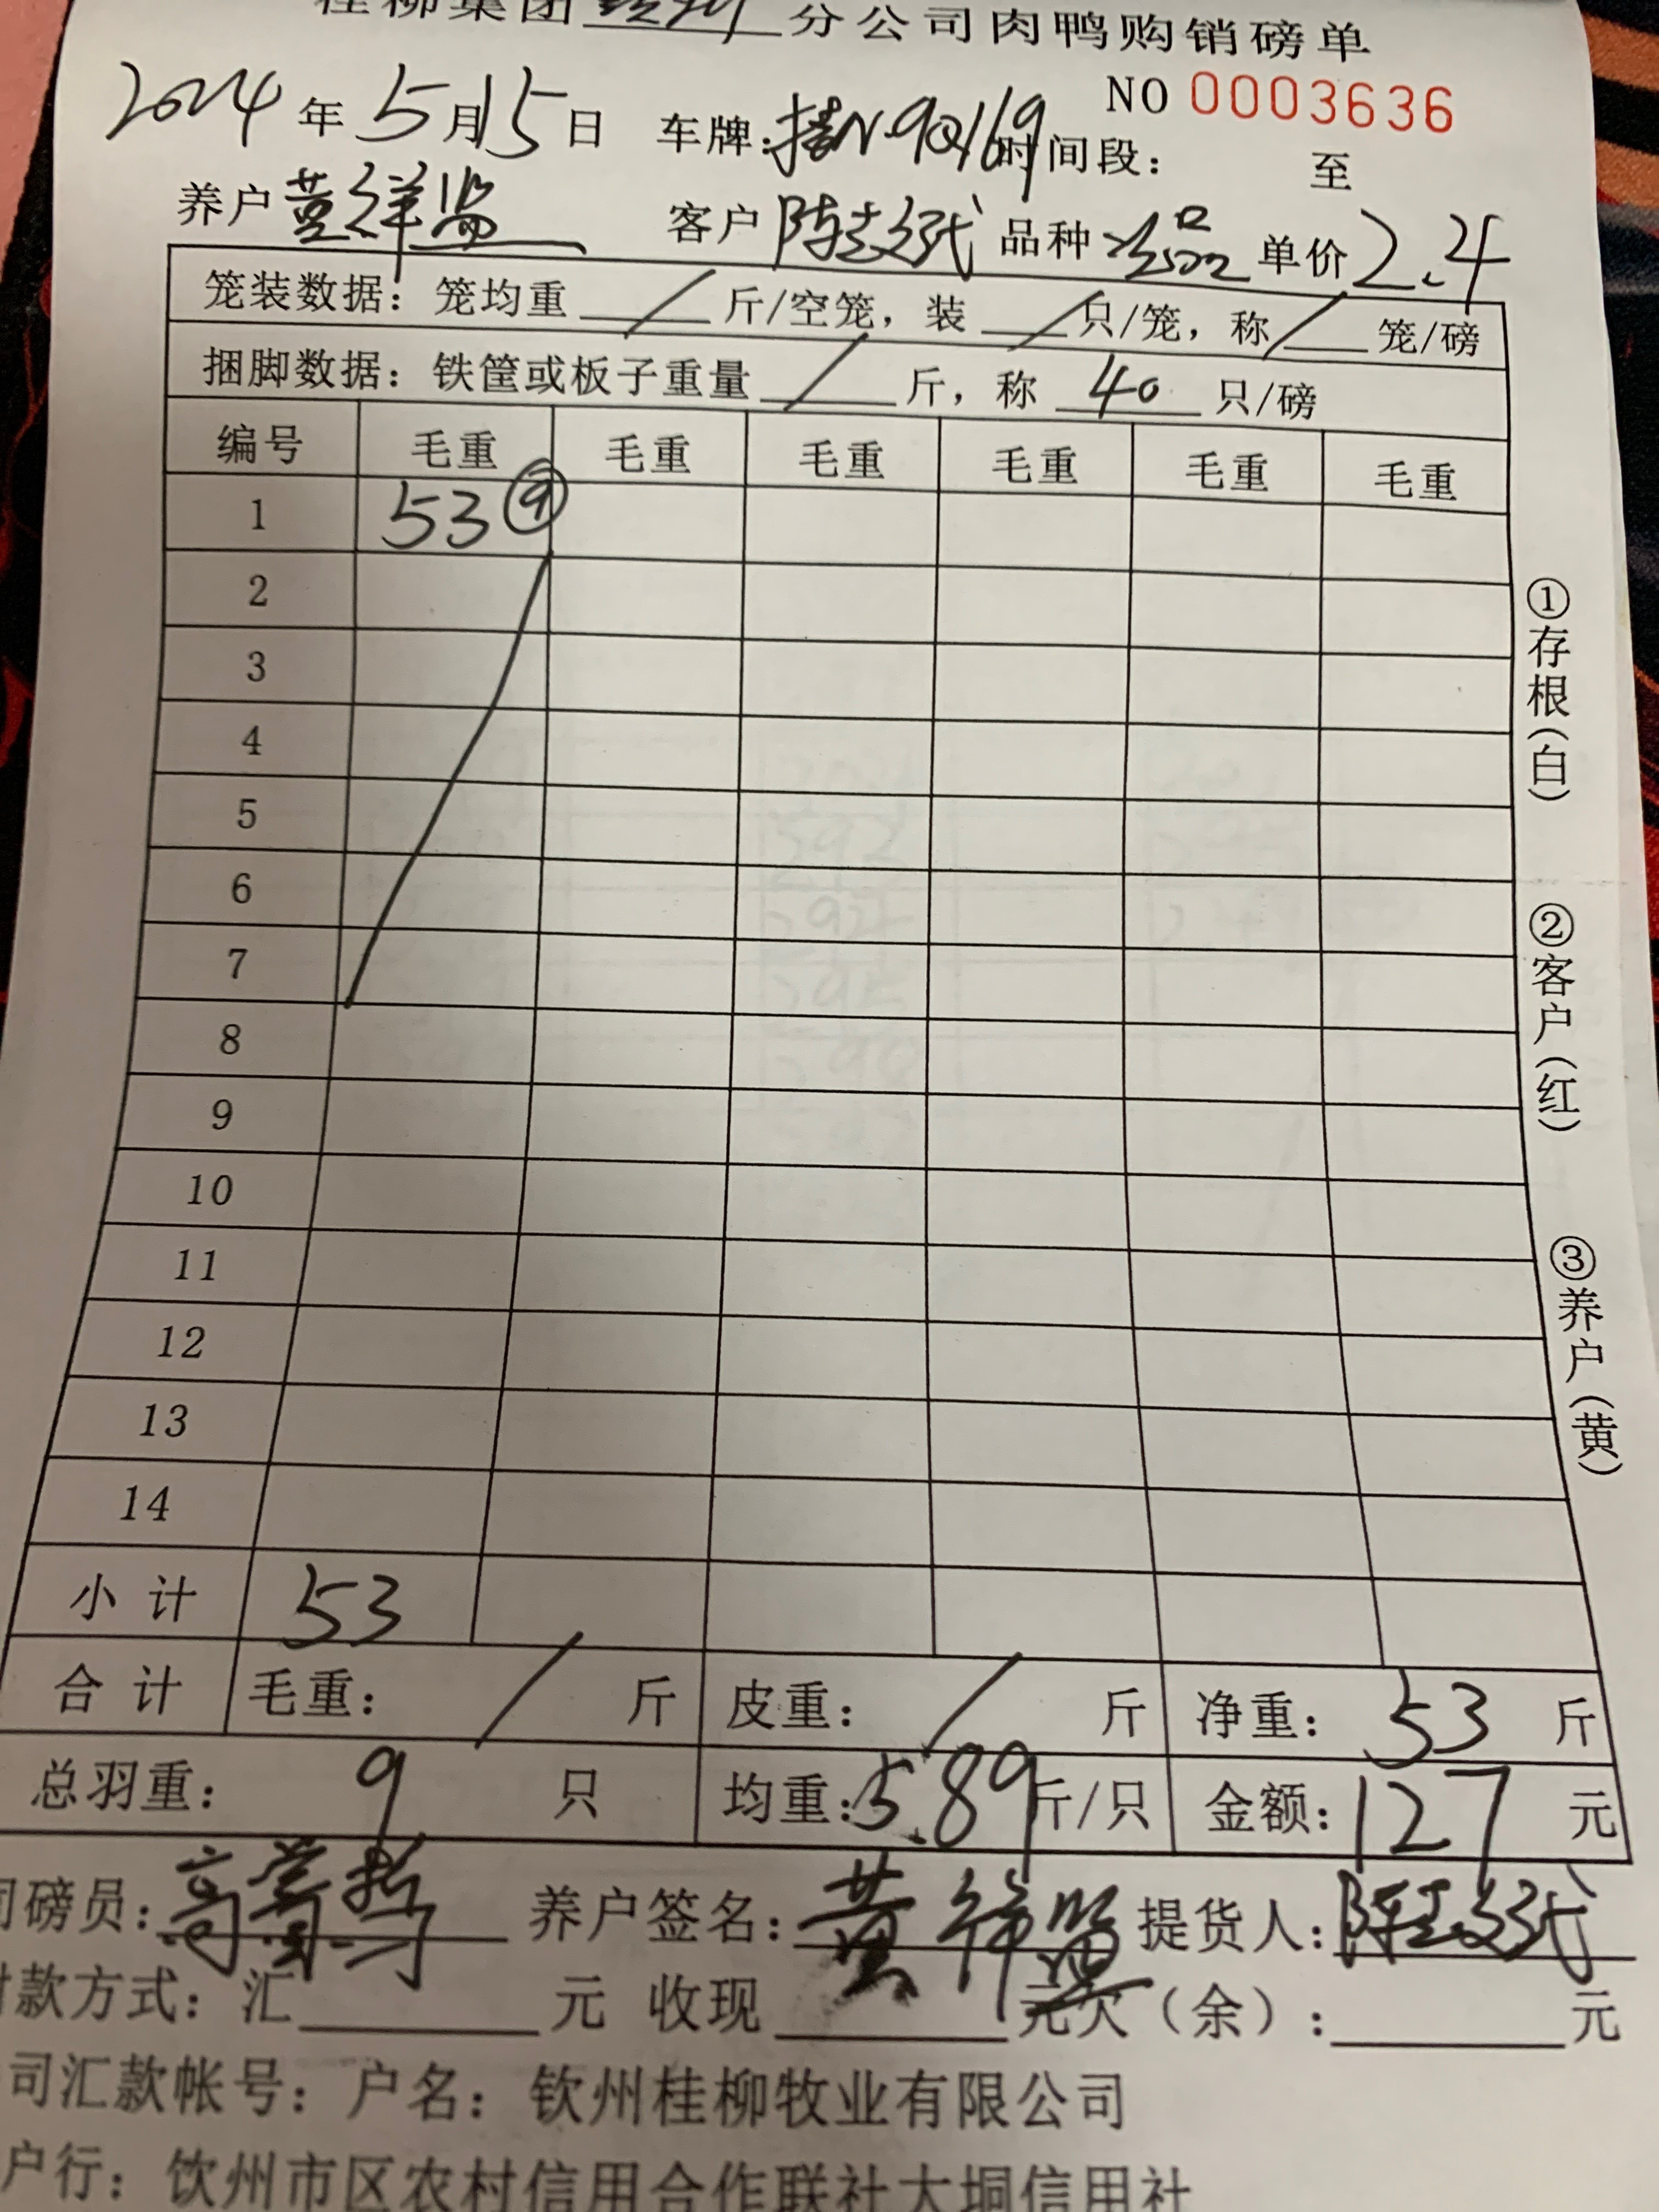 桂柳集团钦州分公司肉鸭购销磅单
NO 0003636
2024年5月15日 车牌: 时间段: 至
养户黄祥监 客户陈 品种 单价2.4
笼装数据:笼均重 / 斤/空笼,装 / 只/笼,称 / 笼/磅
捆脚数据:铁筐或板子重量 / 斤,称 40 只/磅
编号 毛重 毛重 毛重 毛重 毛重 毛重
1 53 ⑨
2
3
4
5
6
7
8
9
10
11
12
13
14
小计 53
合计 毛重: / 斤 皮重: / 斤 净重: 53 斤
总羽重: 9 只 均重:5.89斤/只 金额:127 元
司磅员:高 养户签名:黄祥监 提货人:陈
付款方式:汇 元 收现 元欠(余): 元
司汇款帐号:户名:钦州桂柳牧业有限公司
户行:钦州市区农村信用合作联社大垌信用社
①存根(白)
②客户(红)
③养户(黄)